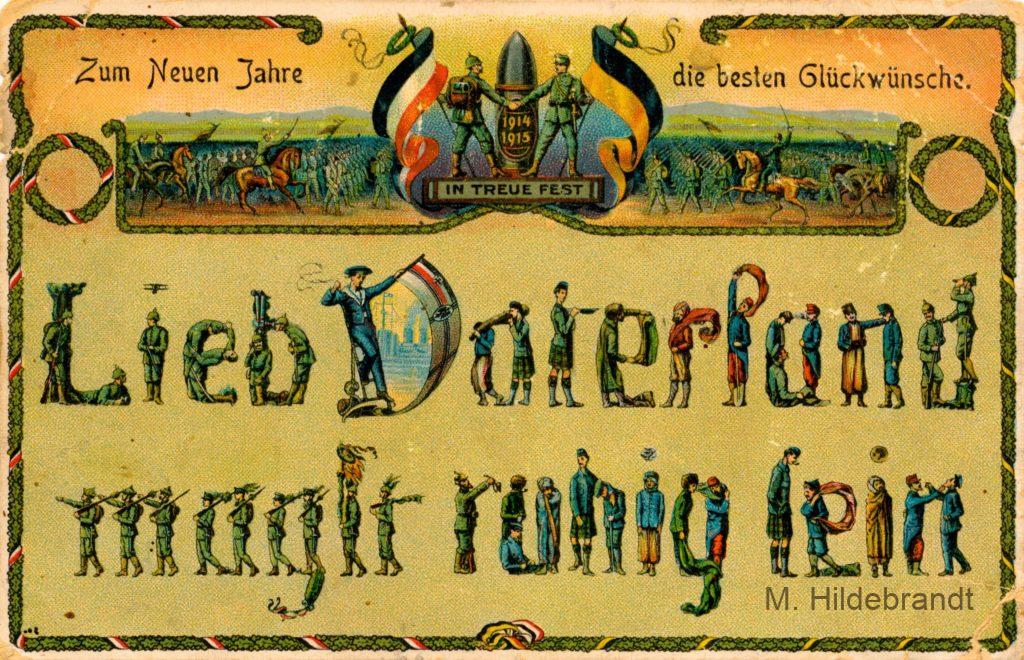 Zum Neuen Jahre die besten Glückwünsche.
1914
1915
IN TREUE FEST
Lieb Vaterland
magſt ruhig ſein
M. Hildebrandt